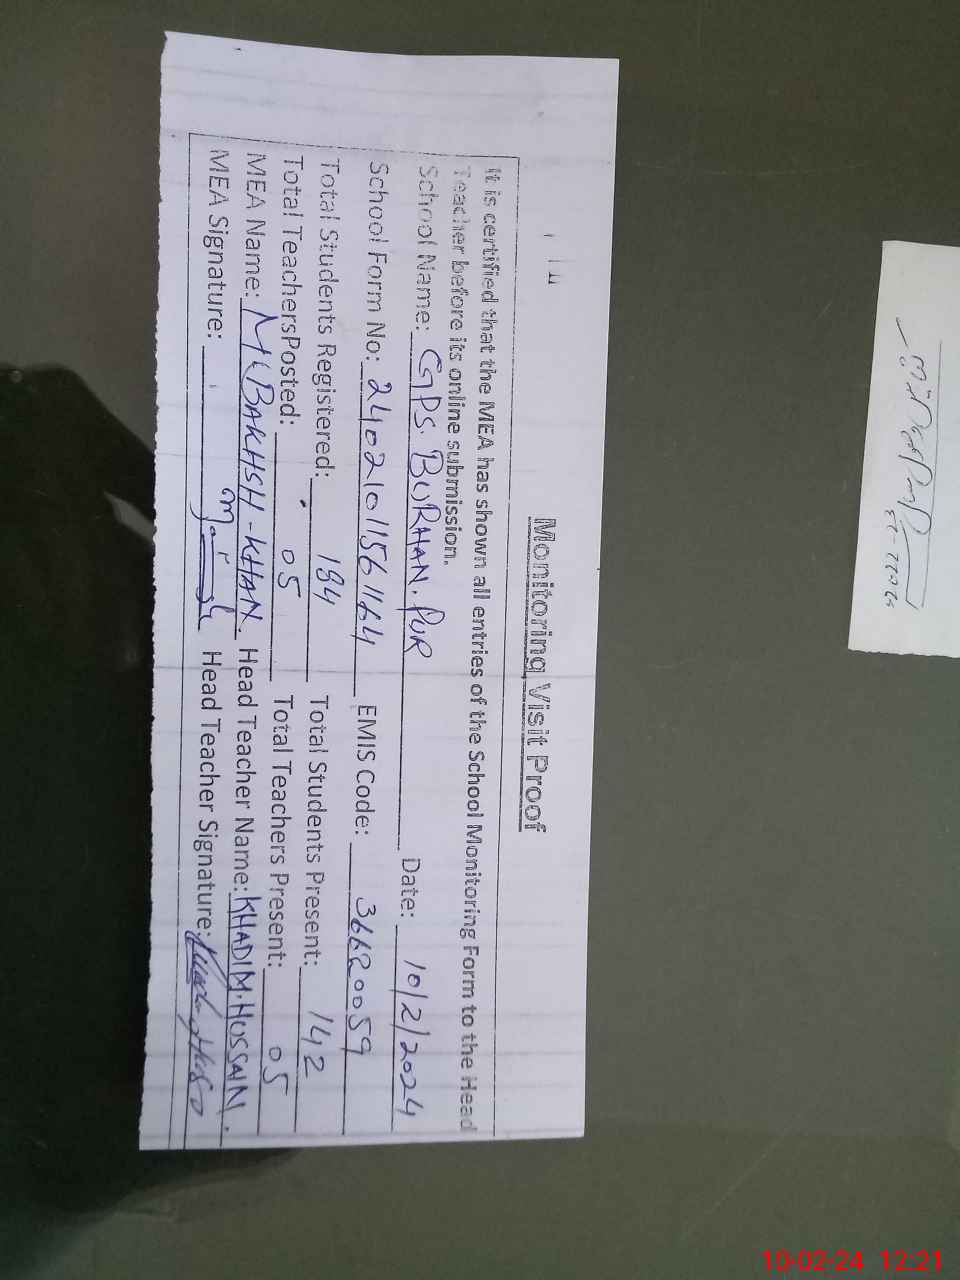 Monitoring Visit Proof
It is certified that the MEA has shown all entries of the School Monitoring Form to the Head
Teacher before its online submission.
School Name: GPS. BURHAN. PUR Date: 10/2/2024
School Form No: 24021011561164 EMIS Code: 36620059
Total Students Registered: 184 Total Students Present: 142
Total TeachersPosted: 05 Total Teachers Present: 05
MEA Name: BAKHSH - KHAN. Head Teacher Name: KHADIM. HUSSAIN.
MEA Signature: Head Teacher Signature:
10-02-24 12:21